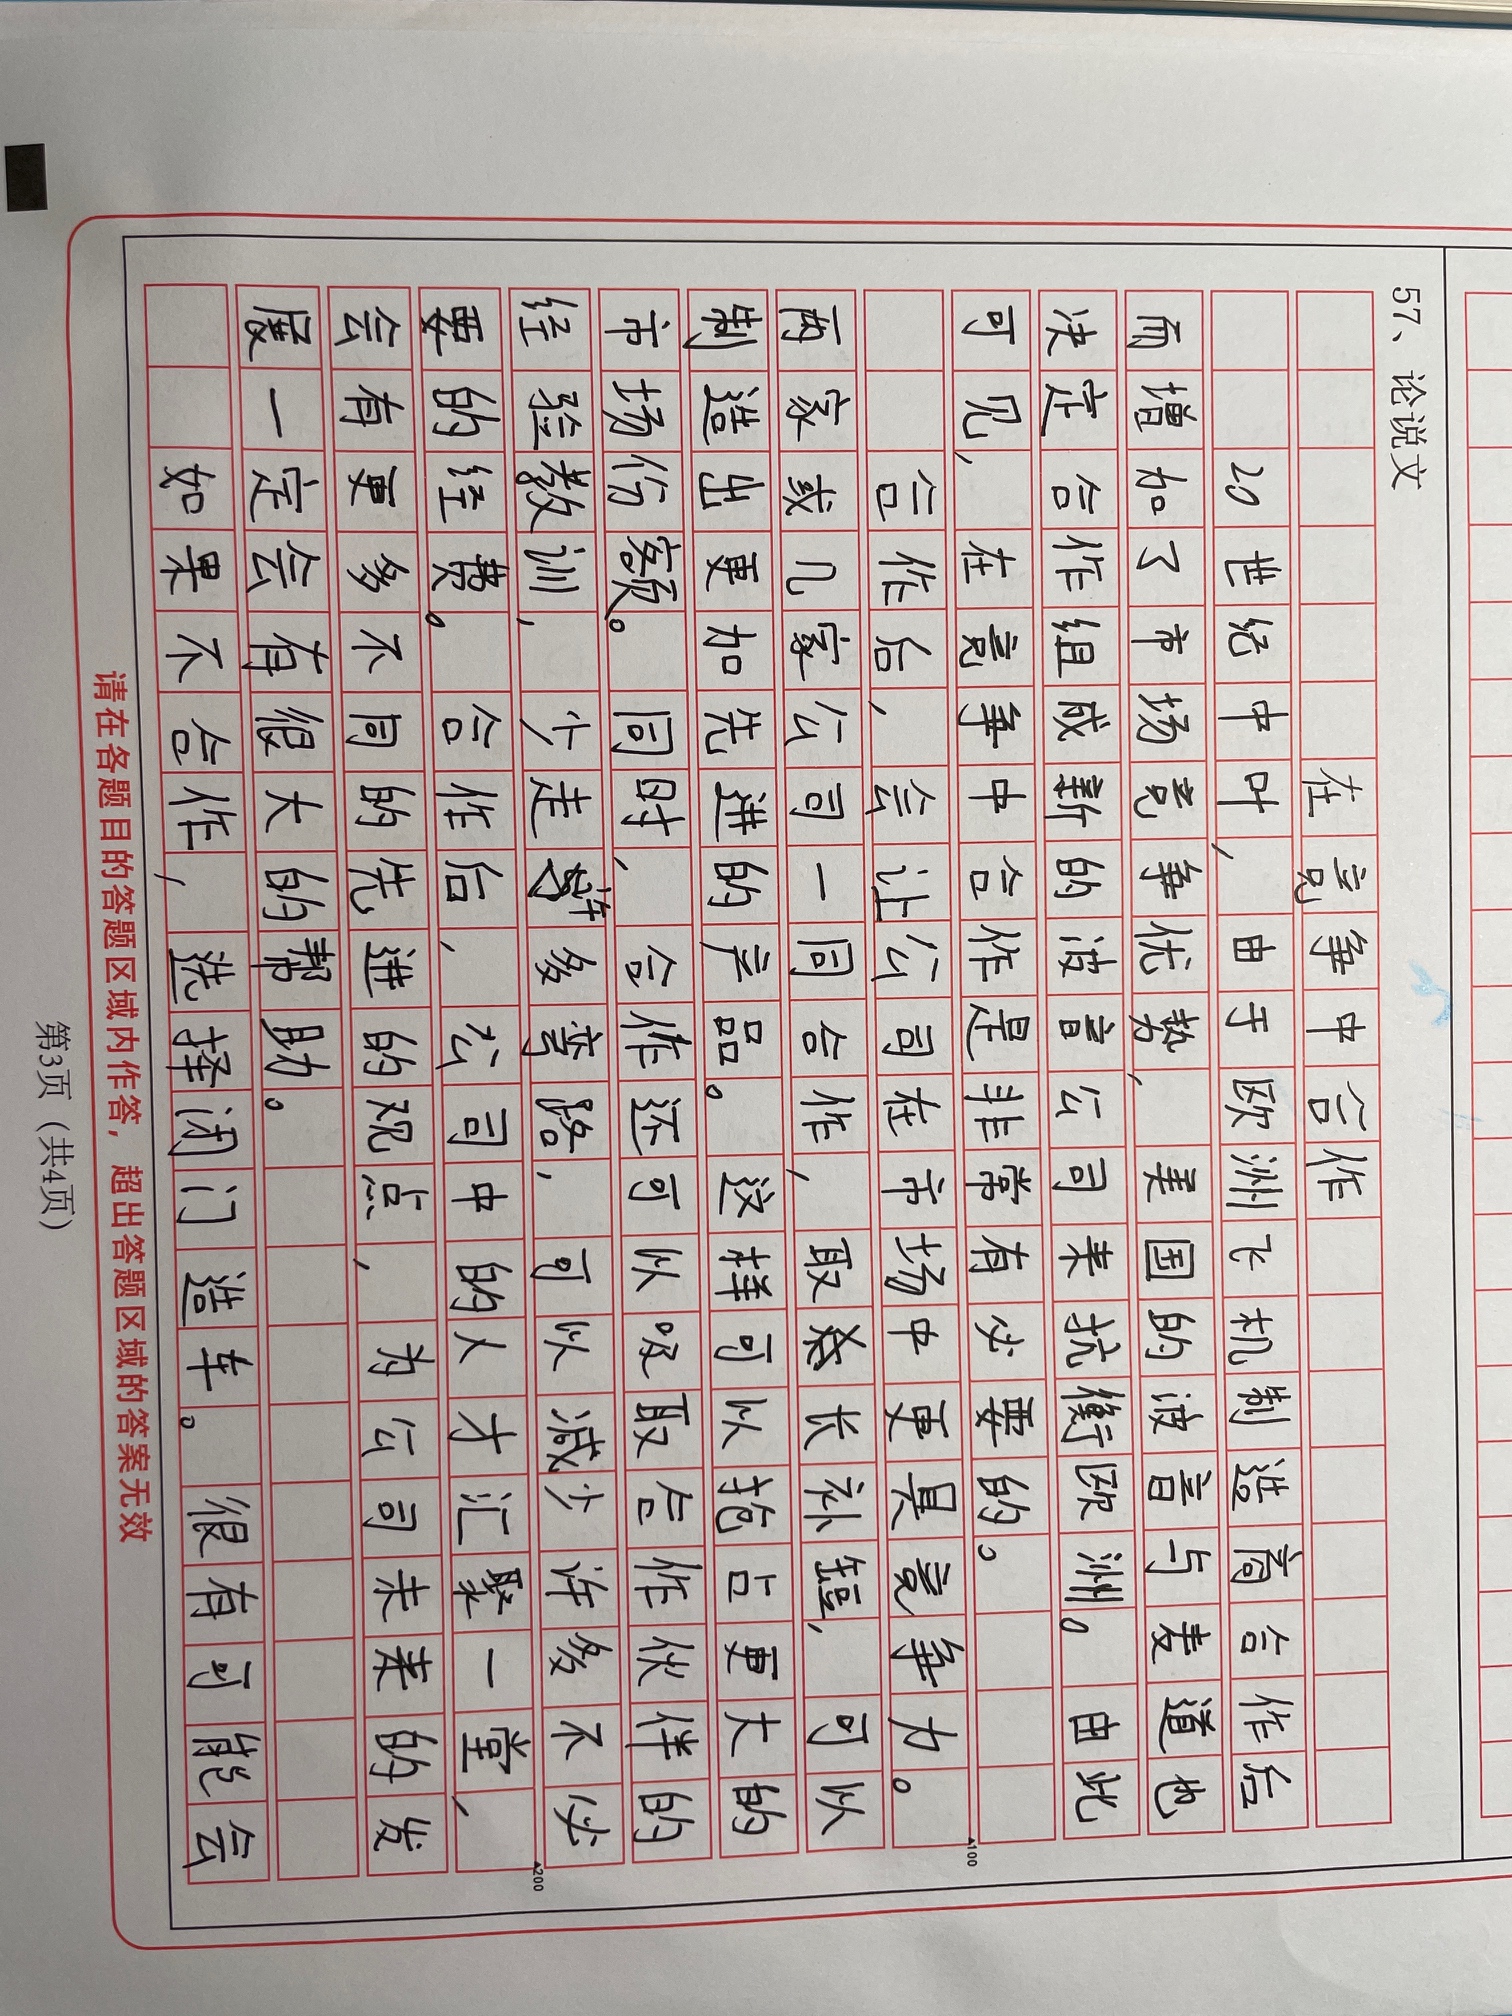 57、论说文
在竞争中合作
20世纪中叶，由于欧洲飞机制造商合作后
而增加了市场竞争优势，美国的波音与麦道也
决定合作组成新的波音公司来抗衡欧洲。由此
可见，在竞争中合作是非常有必要的。
▲100
合作后，会让公司在市场中更具竞争力。
两家或几家公司一同合作，取长补短，可以
制造出更加先进的产品。这样可以抢占更大的
市场份额。同时，合作还可以吸取合作伙伴的
经验教训，少走许多弯路，可以减少许多不必
▲200
要的经费。合作后，公司中的人才汇聚一堂，
会有更多不同的先进的观点，为公司未来的发
展一定会有很大的帮助。
如果不合作，选择闭门造车。很有可能会
请在各题目的答题区域内作答，超出答题区域的答案无效
第3页（共4页）